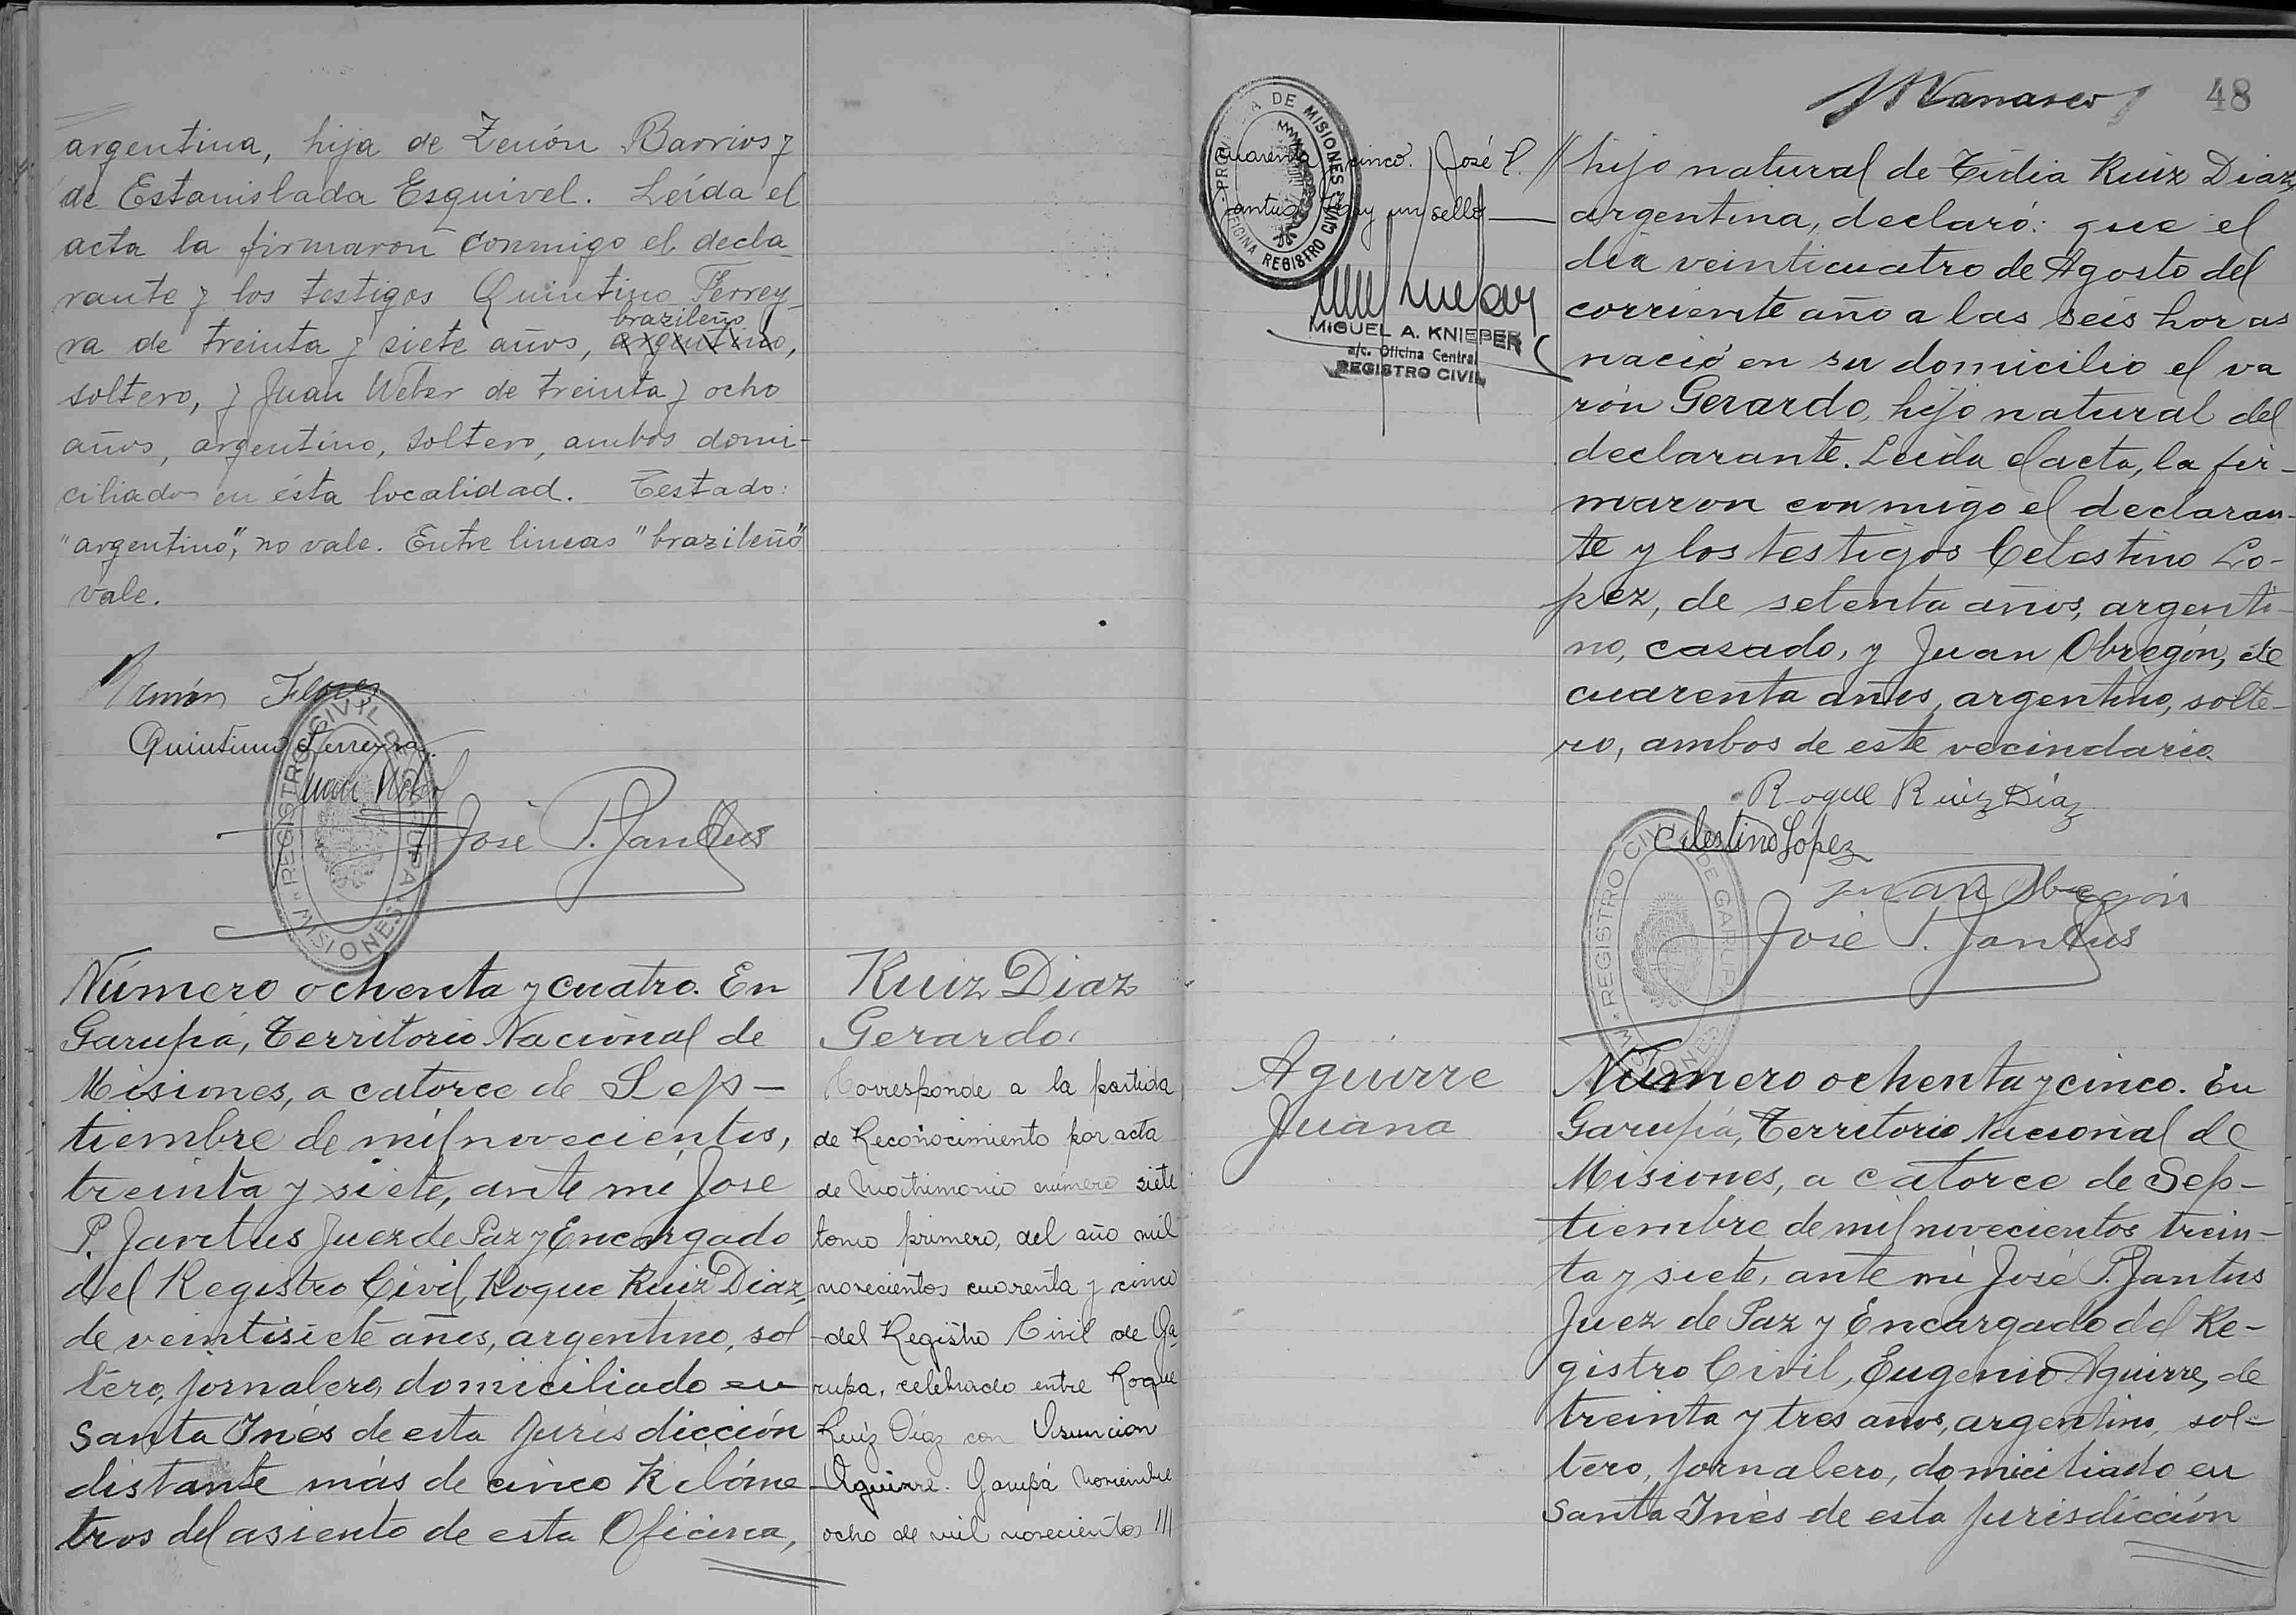 argentina, hija de Zenón Barrios y
de Estanislada Esquivel. Leída el
acta la firmaron conmigo el decla
rante y los testigos Quintino Ferrey
brazileño
ra de treinta y siete años, argentino,
soltero, y Juan Weber de treinta y ocho
años, argentino, soltero, ambos domi-
ciliados en ésta localidad. Testado:
"argentino", no vale. Entre lineas "brazileño"
vale.
Ramón Flores
Quintino Ferreyra
Juan Weber
José P. Jantus
REGISTRO CIVIL DE GARUPA
MISIONES
Número ochenta y cuatro. En
Garupá, Territorio Nacional de
Misiones, a catorce de Sep-
tiembre de mil novecientos,
treinta y siete, ante mi José
P. Jantus Juez de Paz y Encargado
del Registro Civil, Roque Ruiz Diaz,
de veintisiete años, argentino, sol
tero, jornalero, domiciliado en
Santa Inés de esta Jurisdicción
distante más de cinco Kilóme
tros del asiento de esta Oficina,
Ruiz Diaz
Gerardo.
Corresponde a la partida
de Reconocimiento por acta
de Matrimonio número siete
tomo primero, del año mil
novecientos cuarenta y cinco
del Registro Civil de Ga
rupa, celebrado entre Roque
Ruiz Díaz con Asuncion
Aguirre. Garupá Noviembre
ocho de mil novecientos ///
48
cuarenta y cinco. José P. //
Jantus Hay un sello
PROVINCIA DE MISIONES
OFICINA REGISTRO CIVIL
MIGUEL A. KNIEPER
a/c. Oficina Central
REGISTRO CIVIL
hijo natural de Tidia Ruiz Diaz,
argentina, declaró: que el
día veinticuatro de Agosto del
corriente año a las seis horas
nació en su domicilio el va
rón Gerardo, hijo natural del
declarante. Leida el acta, la fir-
maron conmigo el declaran-
te y los testigos Celestino Lo-
pez, de setenta años, argenti-
no, casado, y Juan Obregón, de
cuarenta años, argentino, solte-
ro, ambos de este vecindario.
Roque Ruiz Díaz
Celestino Lopez
Juan Obregón
José P. Jantus
REGISTRO CIVIL DE GARUPA
MISIONES
Aguirre
Juana
Número ochenta y cinco. En
Garupá, Territorio Nacional de
Misiones, a catorce de Sep-
tiembre de mil novecientos trein-
ta y siete, ante mi José P. Jantus
Juez de Paz y Encargado del Re-
gistro Civil, Eugenio Aguirre, de
treinta y tres años, argentino, sol-
tero, jornalero, domiciliado en
Santa Inés de esta Jurisdicción